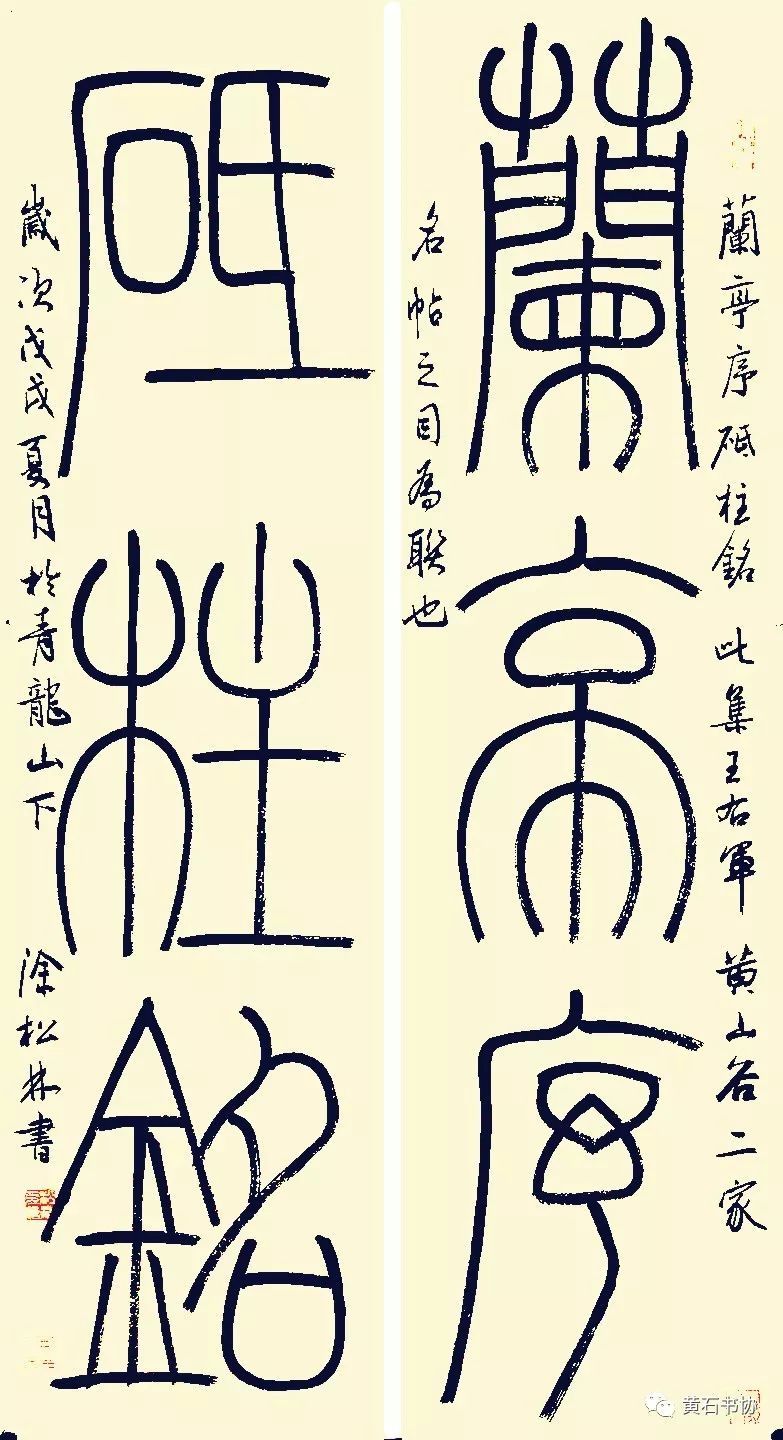 蘭亭序砥柱銘 此集王右軍 黄山谷二家
蘭亭序
名帖之目為聯也
砥柱銘
歲次戊戌夏月於青龍山下 涂松林書
黄石书协